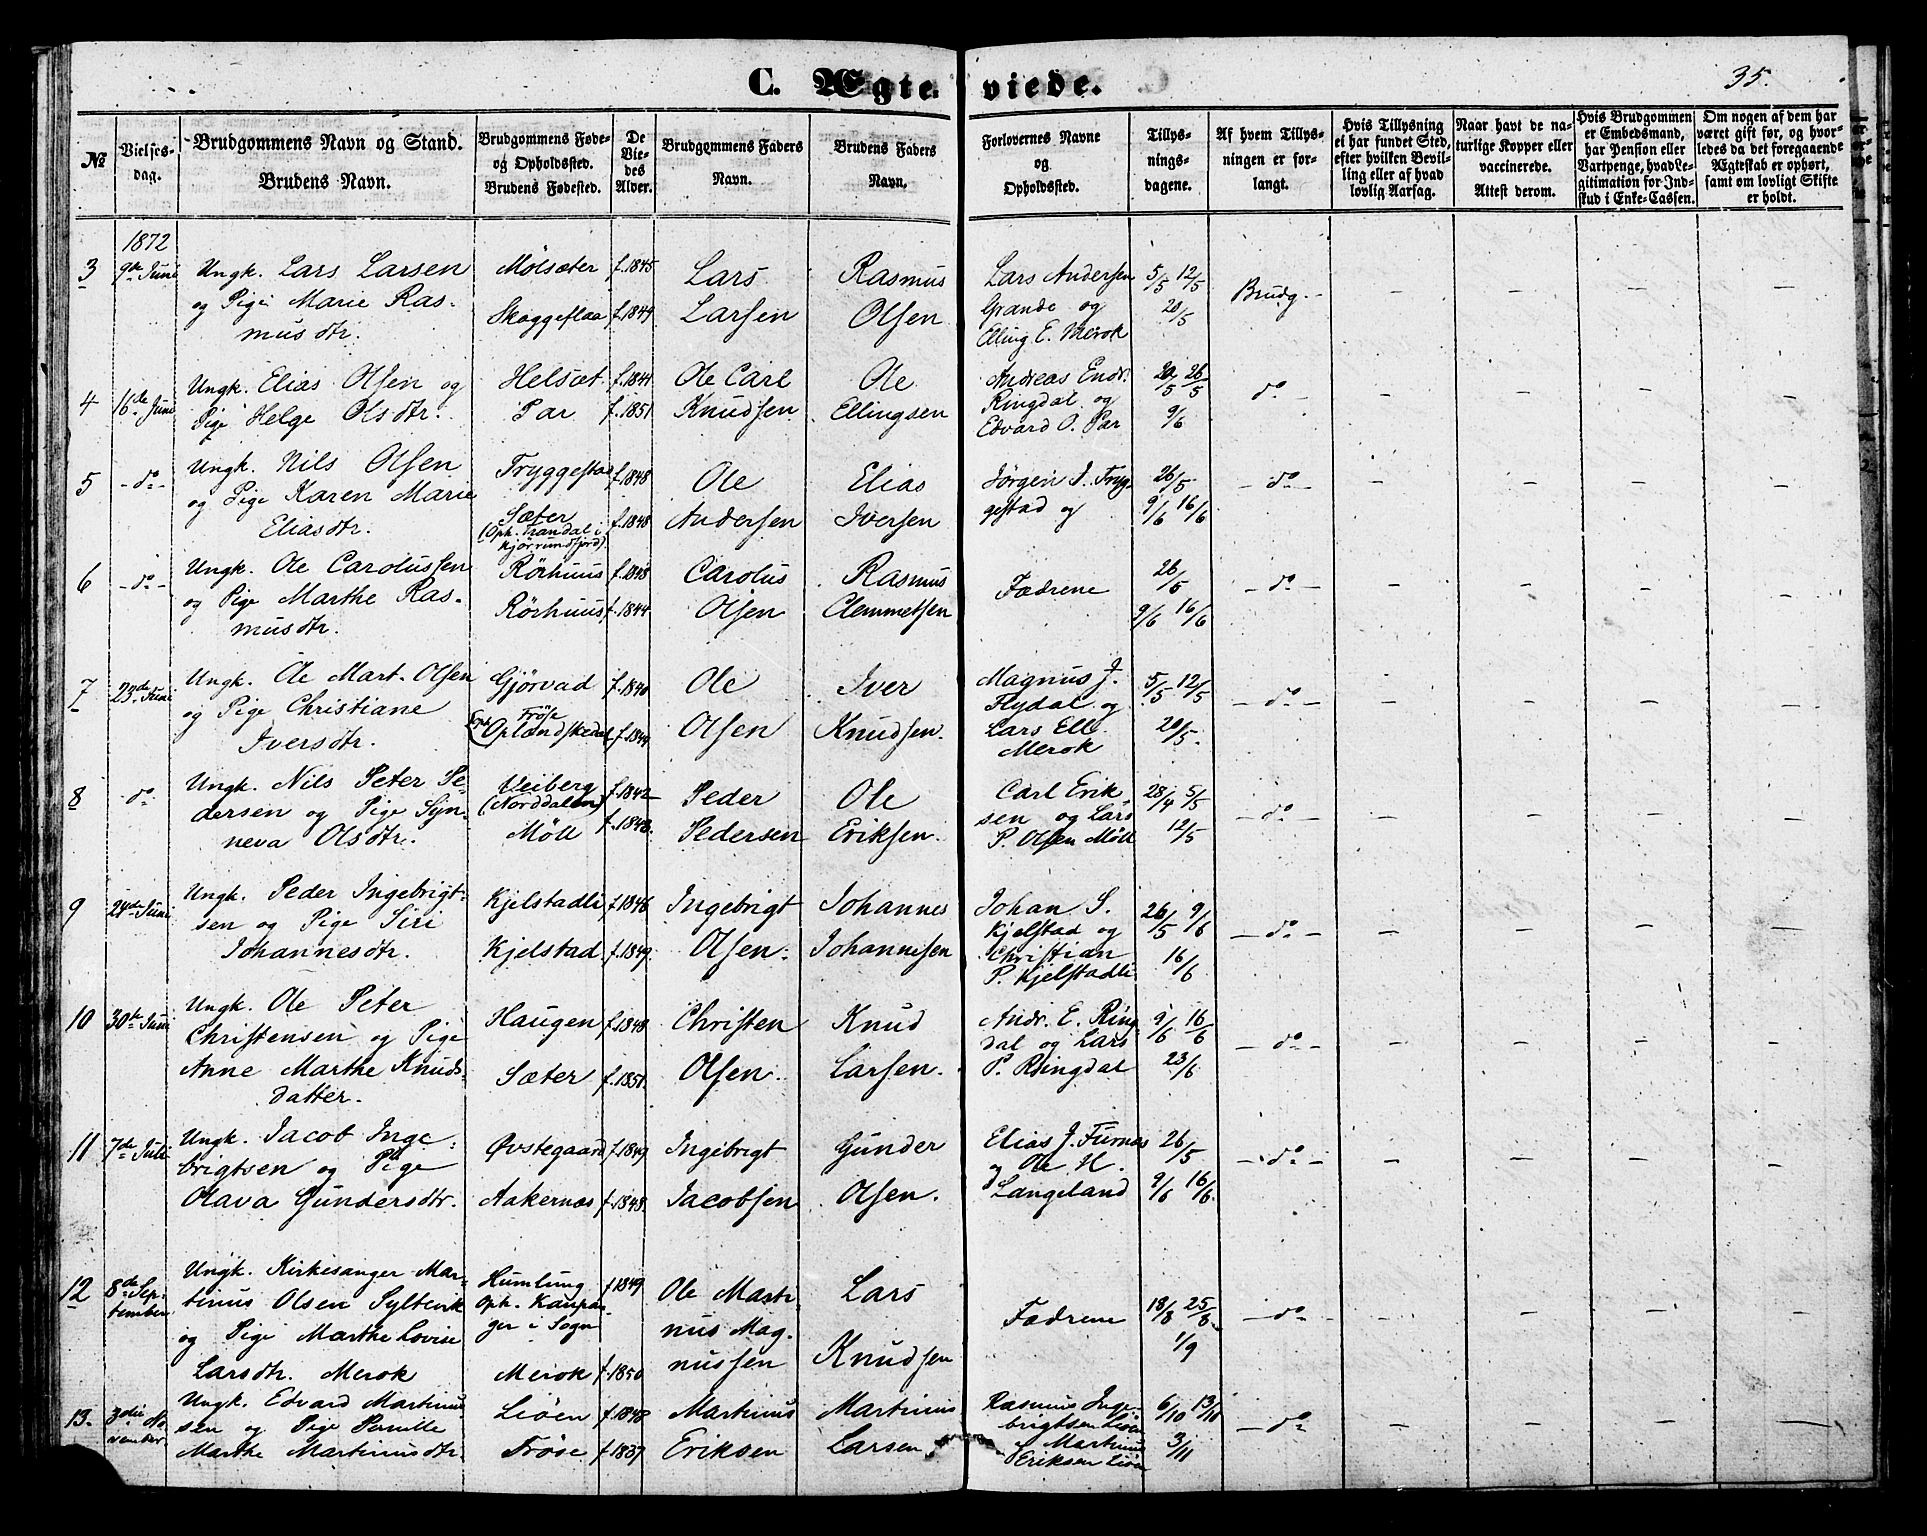 C. Ægteviede.
35.
№
Vielses-
dag.
Brudgommens Navn og Stand.
Brudens Navn.
Brudgommens Føde-
og Opholdssted.
Brudens Fødested.
De
Vie-
des
Alder.
Brudgommens Faders
Navn.
Brudens Faders
Navn.
Forlovernes Navne
og
Opholdssted.
Tillys-
nings-
dagene.
Af hvem Tillys-
ningen er for-
langt.
Hvis Tillysning
ei har fundet Sted,
efter hvilken Bevil-
ling eller af hvad
lovlig Aarsag.
Naar havt de na-
turlige Kopper eller
vaccinerede.
Attest derom.
Hvis Brudgommen
er Embedsmand,
har Pension eller
Vartpenge, hvad Le-
gitimation for Ind-
skud i Enke-Cassen.
Om nogen af dem har
været gift før, og hvor-
ledes da det foregaaende
Ægteskab er ophørt,
samt om lovligt Skifte
er holdt.
1872
3
9de Juni
Ungk. Lars Larsen
og Pige Marie Ras-
musdtr.
Molsæter
Skaggeflaa
f. 1845
f. 1849
Lars
Larsen
Rasmus
Olsen
Lars Andersen
Grande og
Elling E. Merok
5/5 12/5
20/5
Brudg.
4
16de Juni
Ungk. Elias Olsen og
Pige Helge Olsdtr.
Helsæt
Par
f. 1841
f. 1851
Ole Carl
Knudsen
Ole
Ellingsen
Andreas Endr.
Ringdal og
Edvard O. Par
20/5 26/5
9/6
do
5
do
Ungk. Nils Olsen
og Pige Karen Marie
Eliasdtr.
Tryggestad
Sæter
(Oph. Trandal i
Hjørrundfjord)
f. 1848
f. 1848
Ole
Andersen
Elias
Iversen
Jørgen J. Tryg-
gestad og
26/5
9/6 16/6
do
6
do
Ungk. Ole Carolussen
og Pige Marthe Ras-
musdtr.
Rörhuus
Rörhuus
f. 1848
f. 1844
Carolus
Olsen
Rasmus
Clemmetsen
Fædrene
26/5
9/6 16/6
do
7
23de Juni
Ungk. Ole Mart. Olsen
og Pige Christiane
Iversdtr.
Gjörvad
Fröse
Oplændskedal
f. 1840
f. 1844
Ole
Olsen
Iver
Knudsen.
Magnus J.
Flydal og
Lars Ell.
Merok
5/5 12/5
20/5.
do
8
do
Ungk. Nils Peter Pe-
dersen og Pige Syn-
neva Olsdtr.
Veiberg
(Norddalen)
Möll
f. 1842
f. 1848.
Peder
Pedersen
Ole
Eriksen.
Carl Erik-
sen og Lars
P. Olsen Möll
28/4 5/5
12/5
do
9
24de Juni
Ungk. Peder Ingebrigt-
sen og Pige Siri
Johannesdtr.
Kjelstadli
Kjelstad
f. 1846
f. 1849.
Ingebrigt
Olsen.
Johannes
Johannesen
Johan S.
Kjelstad og
Christian
P. Kjelstadli
26/5 9/6
16/6
do
10
30te Juni
Ungk. Ole Peter
Christensen og Pige
Anne Marthe Knuds-
datter.
Haugen
Sæter
f. 1848.
f. 1851.
Christen
Olsen.
Knud
Larsen.
Andr. E. Ring-
dal og Lars
P. Ringdal
9/6 16/6
23/6
do
11
7de Juli
Ungk. Jacob Inge-
brigtsen og Pige
Olava Gundersdtr.
Øvstegaard
Aakernæs
f. 1849
f. 1848.
Ingebrigt
Jacobsen
Gunder
Olsen.
Elias J. Furnæs
og Ole H.
Langeland
26/5
9/6 16/6
do
12
8de Sep-
tember
Ungk. Kirkesanger Mar-
tinus Olsen Syltevik
og Pige Marthe Lovise
Larsdtr. Merok
Humlung
Oph. Kaupan-
ger i Sogn
Merok
f. 1849
f. 1850
Ole Marti-
nus Mag-
nussen
Lars
Knudsen
Fædrene
18/8 25/8
1/9
do
13.
3die No-
vember
Ungk. Edvard Martinus-
sen og Pige Pernille
Marthe Martinusdtr.
Liöen
Fröse
f. 1848
f. 1837
Martinus
Eriksen
Martinus
Larsen
Rasmus Inge-
brigtsen Liöen
Martinus
Eriksen Liöen
6/10 13/10
3/11
do